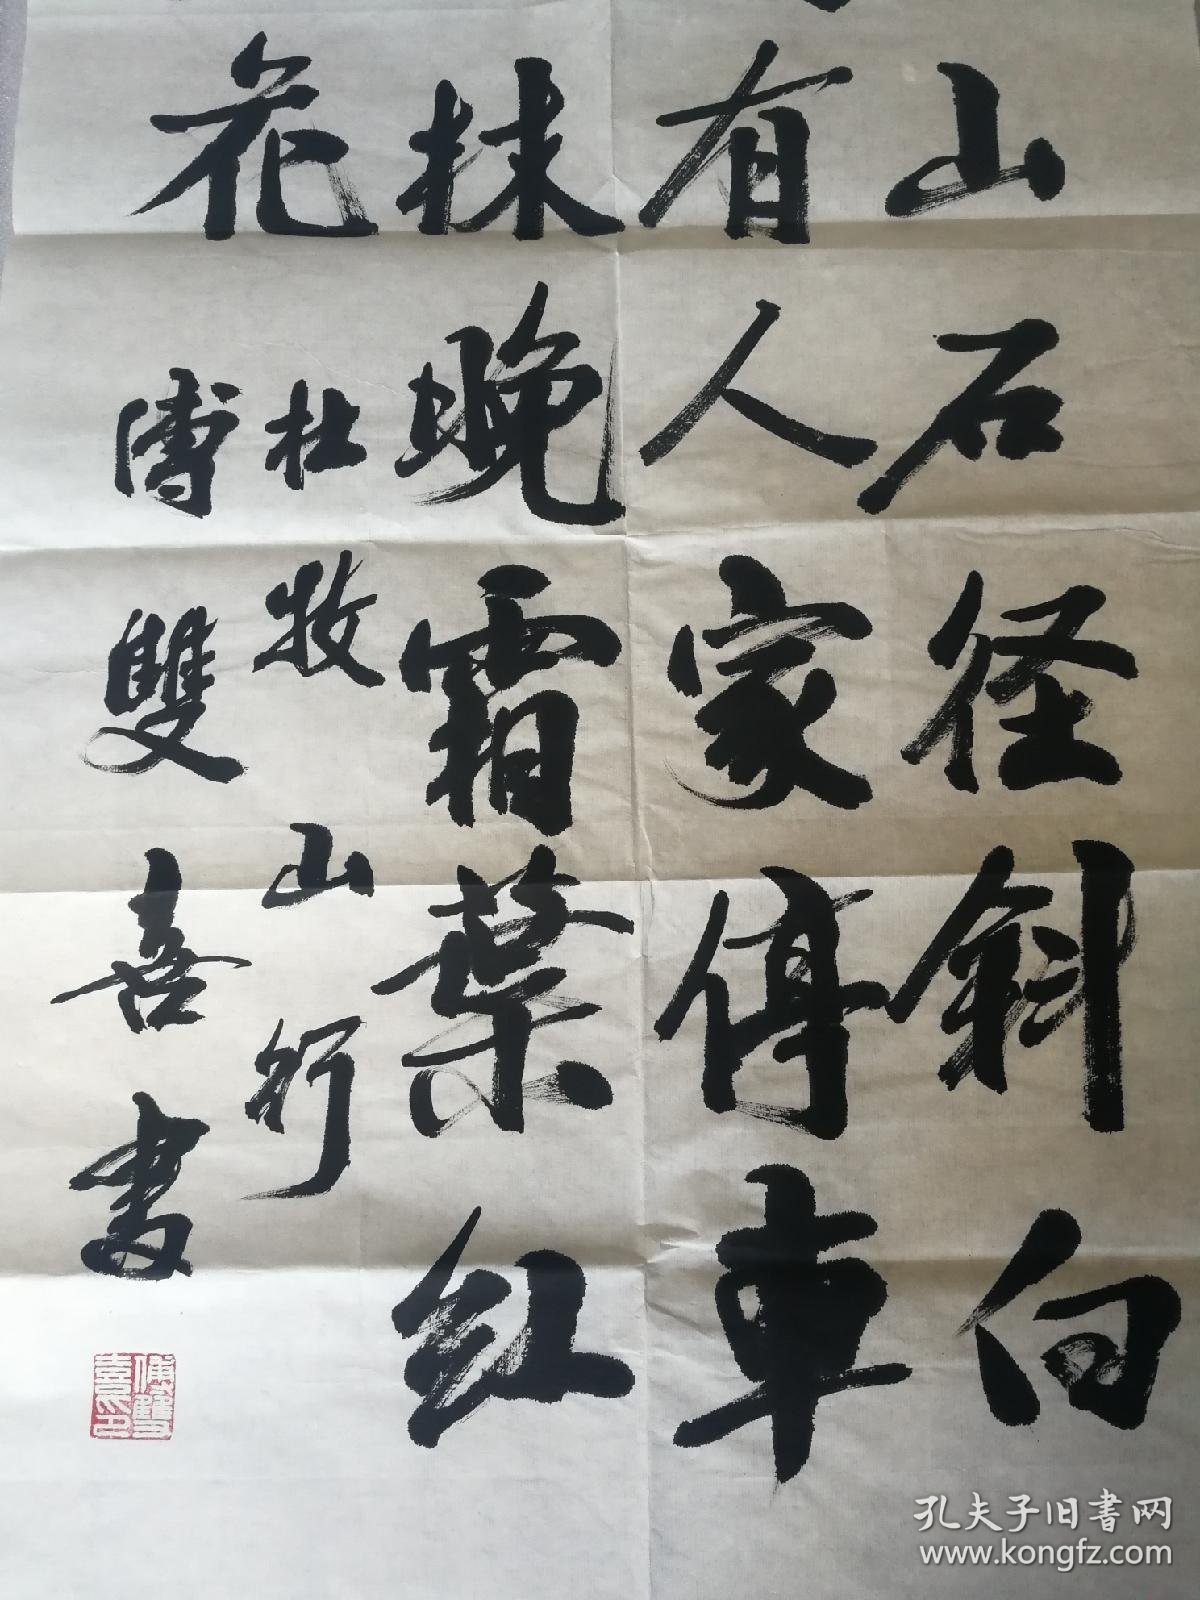 山石径斜白
有人家停車
林晚霜葉紅
花
杜牧山行
傅雙喜書
傅雙喜印
孔夫子旧書网
www.kongfz.com